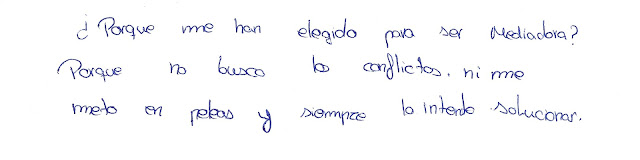 ¿Porque me han elegido para ser Mediadora?
Porque no busco los conflictos. ni me
meto en peleas y siempre lo intento solucionar.